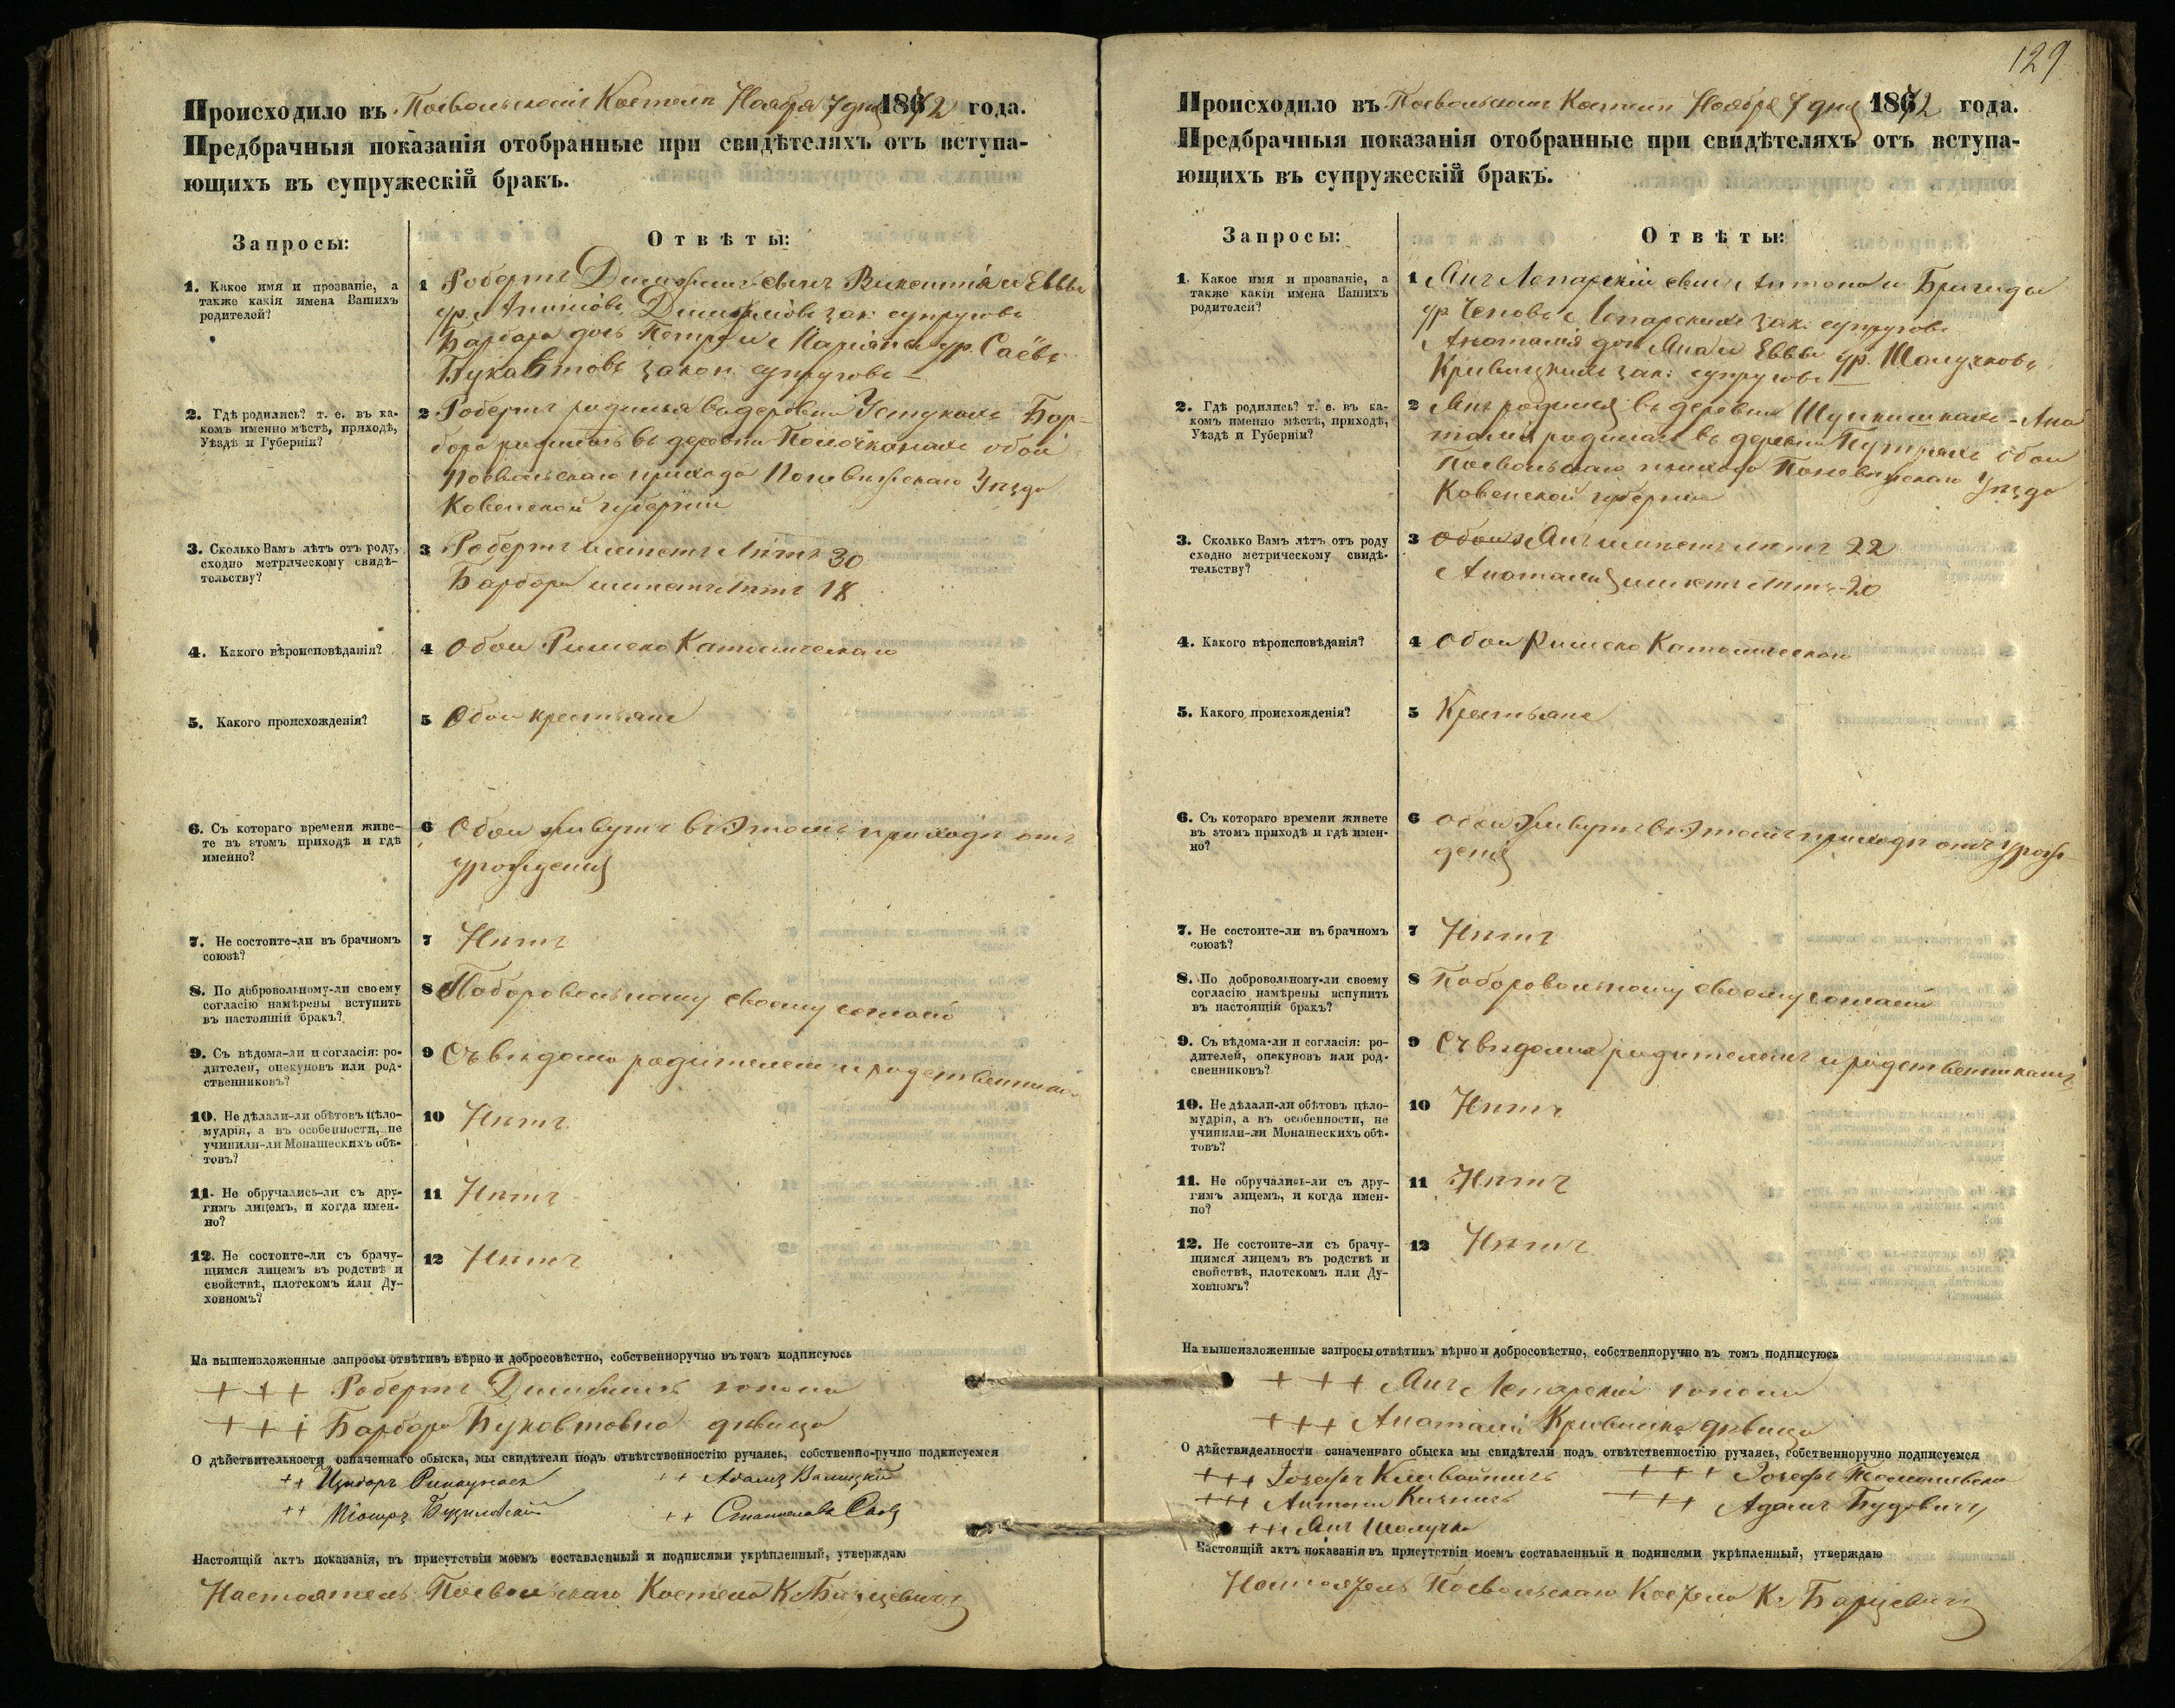 Происходило въ Поевольскомъ Костелѣ Ноября 7 дня 1872 года.
Предбрачныя показанія отобранные при свидѣтеляхъ отъ вступа-
ющихъ въ супружескій бракъ.
Запросы:
Отвѣты:
1. Какое имя и прозваніе, а
также какія имена Вашихъ
родителей?
1 Робертъ сынъ Викентія и Еввы
ур. зак: супруговъ
Барбара дочь Петра и Маріяны ур. Саёвъ
закон супруговъ
2. Гдѣ родились? т. е. въ ка-
комъ именно мѣстѣ, приходѣ,
Уѣздѣ и Губерніи?
2 Робертъ родился въ деревни Устукахъ Бар-
бара родилась въ деревни обои
Поевольскаго прихода Поневѣжскаго Уѣзда
Ковенской губерніи
3. Сколько Вамъ лѣтъ отъ роду,
сходно метрическому свидѣ-
тельству?
3 Робертъ имѣетъ лѣтъ 30
Барбора имѣетъ лѣтъ 18
4. Какого вѣроисповѣданія?
4 Обои Римско Католическаго
5. Какого происхожденія?
5 Обои крестьяне
6. Съ котораго времени живе-
те въ этомъ приходѣ и гдѣ
именно?
6 Обои живутъ въ Этомъ приходѣ отъ
урожденія
7. Не состоите-ли въ брачномъ
союзѣ?
7 Нѣтъ
8. По добровольному-ли своему
согласію намѣрены вступить
въ настоящій бракъ?
8 Поборовольному своему согласію
9. Съ вѣдома-ли и согласія: ро-
дителеи, опекуновъ или род-
ственниковъ?
9 Съ вѣдома родителеи и родственникаи
10. Не дѣлали-ли обѣтовъ цѣло-
мудрія, а въ особенности, не
учинили-ли Монашескихъ обѣ-
товъ?
10 Нѣтъ
11. Не обручались-ли съ дру-
гимъ лицемъ, и когда имен-
но?
11 Нѣтъ
12. Не состоите-ли съ брачу-
щимся лицемъ въ родствѣ и
свойствѣ, плотскомъ или Ду-
ховномъ?
12 Нѣтъ
На вышеизложенные запросы отвѣтивъ вѣрно и добросовѣстно, собственноручно въ томъ подписуюсь
+++ Робертъ
+++ Барбара Буковтовна дѣвица
О дѣйствительности означеннаго обыска, мы свидѣтели подъ отвѣтственностію ручаясь, собственно-ручно подписуемся
++ Изыдоръ ++ Адамъ Валицкій
++ Піотръ ++ Станиславъ
Настоящій актъ показанія, въ присутствіи моемъ составленный и подписями укрѣпленный, утверждаю
Настоятель Поевольскаго Костела К. Барцевичъ
129
Происходило въ Поевольскомъ Костелѣ Ноября 7 дня 1872 года.
Предбрачныя показанія отобранные при свидѣтеляхъ отъ вступа-
ющихъ въ супружескій бракъ.
Запросы:
Отвѣты:
1. Какое имя и прозваніе, а
также какія имена Вашихъ
родителей?
1 Янъ Лопарскій сынъ Антона и Бригиды
ур. Лопарскихъ зак: супруговъ
Анаталія дочь Яна и Еввы ур. Шалучковъ
Кривицкихъ зак: супруговъ
2. Гдѣ родились? т. е. въ ка-
комъ именно мѣстѣ, приходѣ,
Уѣздѣ и Губерніи?
2 Янъ родился въ деревни - Ана
талія родилась въ деревни обои
Поевольскаго прихода Поневѣжскаго Уѣзда
Ковенской губерніи
3. Сколько Вамъ лѣтъ отъ роду
сходно метрическому свидѣ-
тельству?
3 Янъ имѣетъ лѣтъ 22
Анаталія имѣетъ лѣтъ 20
4. Какого вѣроисповѣданія?
4 Обои Римско Католическаго
5. Какого происхожденія?
5 Крестьяне
6. Съ котораго времени живете
въ этомъ приходѣ и гдѣ имен-
но?
6 Обои живутъ въ Этомъ приходѣ отъ урож-
денія
7. Не состоите-ли въ брачномъ
союзѣ?
7 Нѣтъ
8. По добровольному-ли своему
согласію намѣрены вспупить
въ настоящій бракъ?
8 Поборовольному своему согласію
9. Съ вѣдома-ли и согласія: ро-
дителей, опекуновъ или род-
свенниковъ?
9 Съ вѣдома родителеи и родственникаиъ
10. Не дѣлали-ли обѣтовъ цѣло-
мудрія, а въ особенности, не
учинили-ли Монашескихъ обѣ-
товъ?
10 Нѣтъ
11. Не обручались-ли съ дру-
гимъ лицемъ, и когда имен-
но?
11 Нѣтъ
12. Не состоите-ли съ брачу-
щимся лицемъ въ родствѣ и
свойствѣ, плотскомъ или Ду-
ховномъ?
12 Нѣтъ
На вышеизложенные запросы отвѣтивъ вѣрно и добросовѣстно, собственноручно въ томъ подписуюсь
+++ Янъ Лопарскій
+++ Анаталія дѣвица
О дѣйствидельности означеннаго обыска мы свидѣтели подъ отвѣтственностію ручаясь, собственноручно подписуемся
+++ Іозефъ +++ Іозефъ
+++ Антони +++ Адамъ Будовичъ
+++ Янъ Шалучка
Настоящій актъ показанія въ присутствіи моемъ составленный и подписями укрѣпленный, утверждаю
Настоятель Поевольскаго Костела К. Барцевичъ